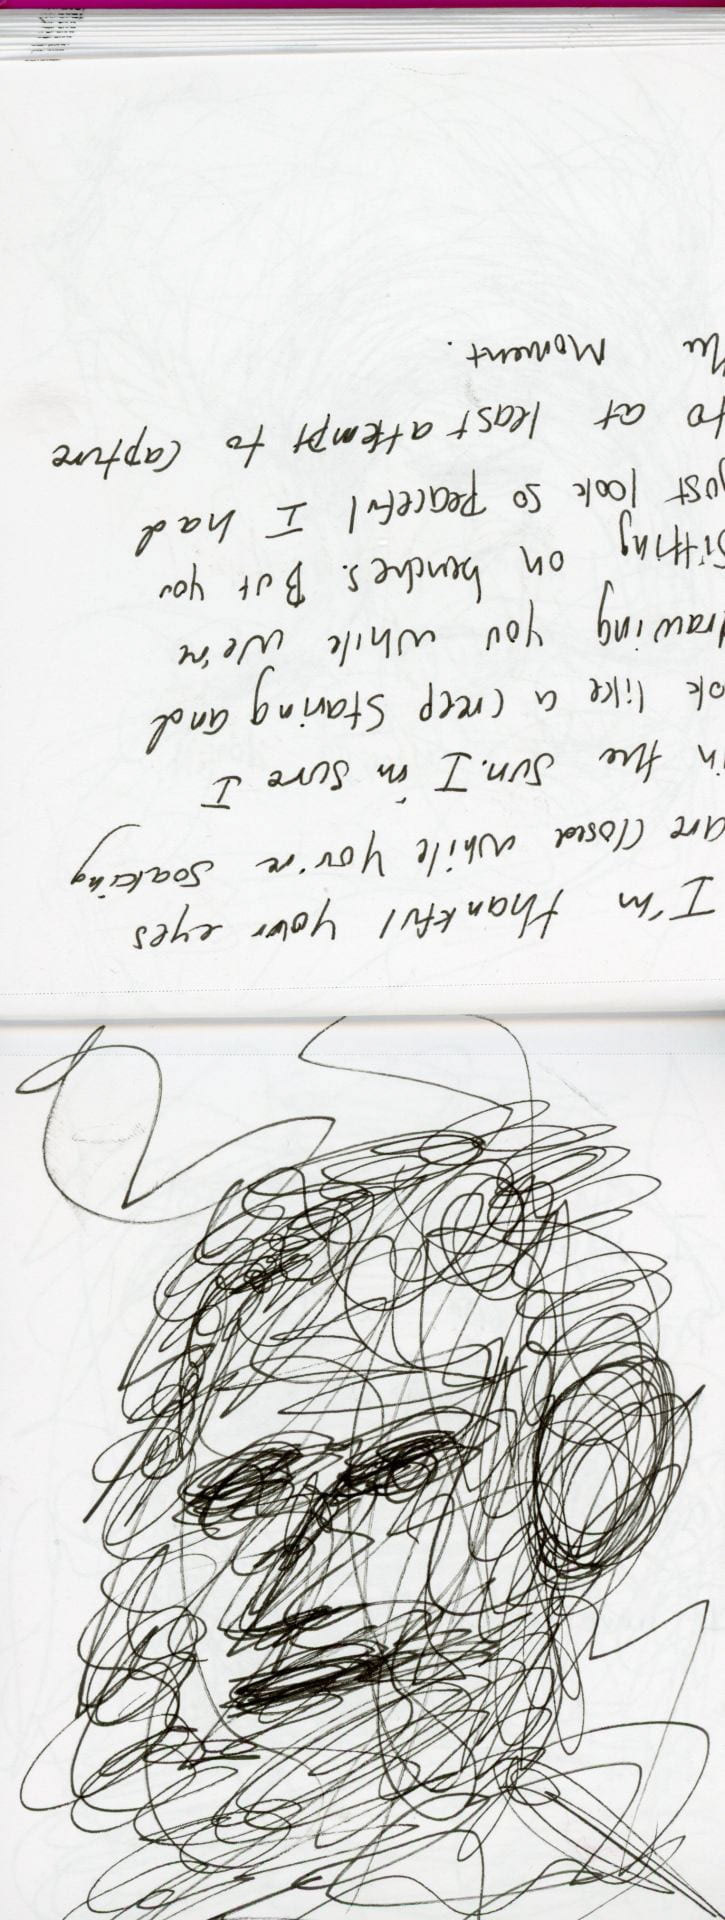 I'm thankful your eyes
are closed while you're soaking
in the sun. I'm sure I
ok like a creep staring and
drawing you while we're
sitting on benches. But you
just look so peaceful I had
to at least attempt to capture
the moment.